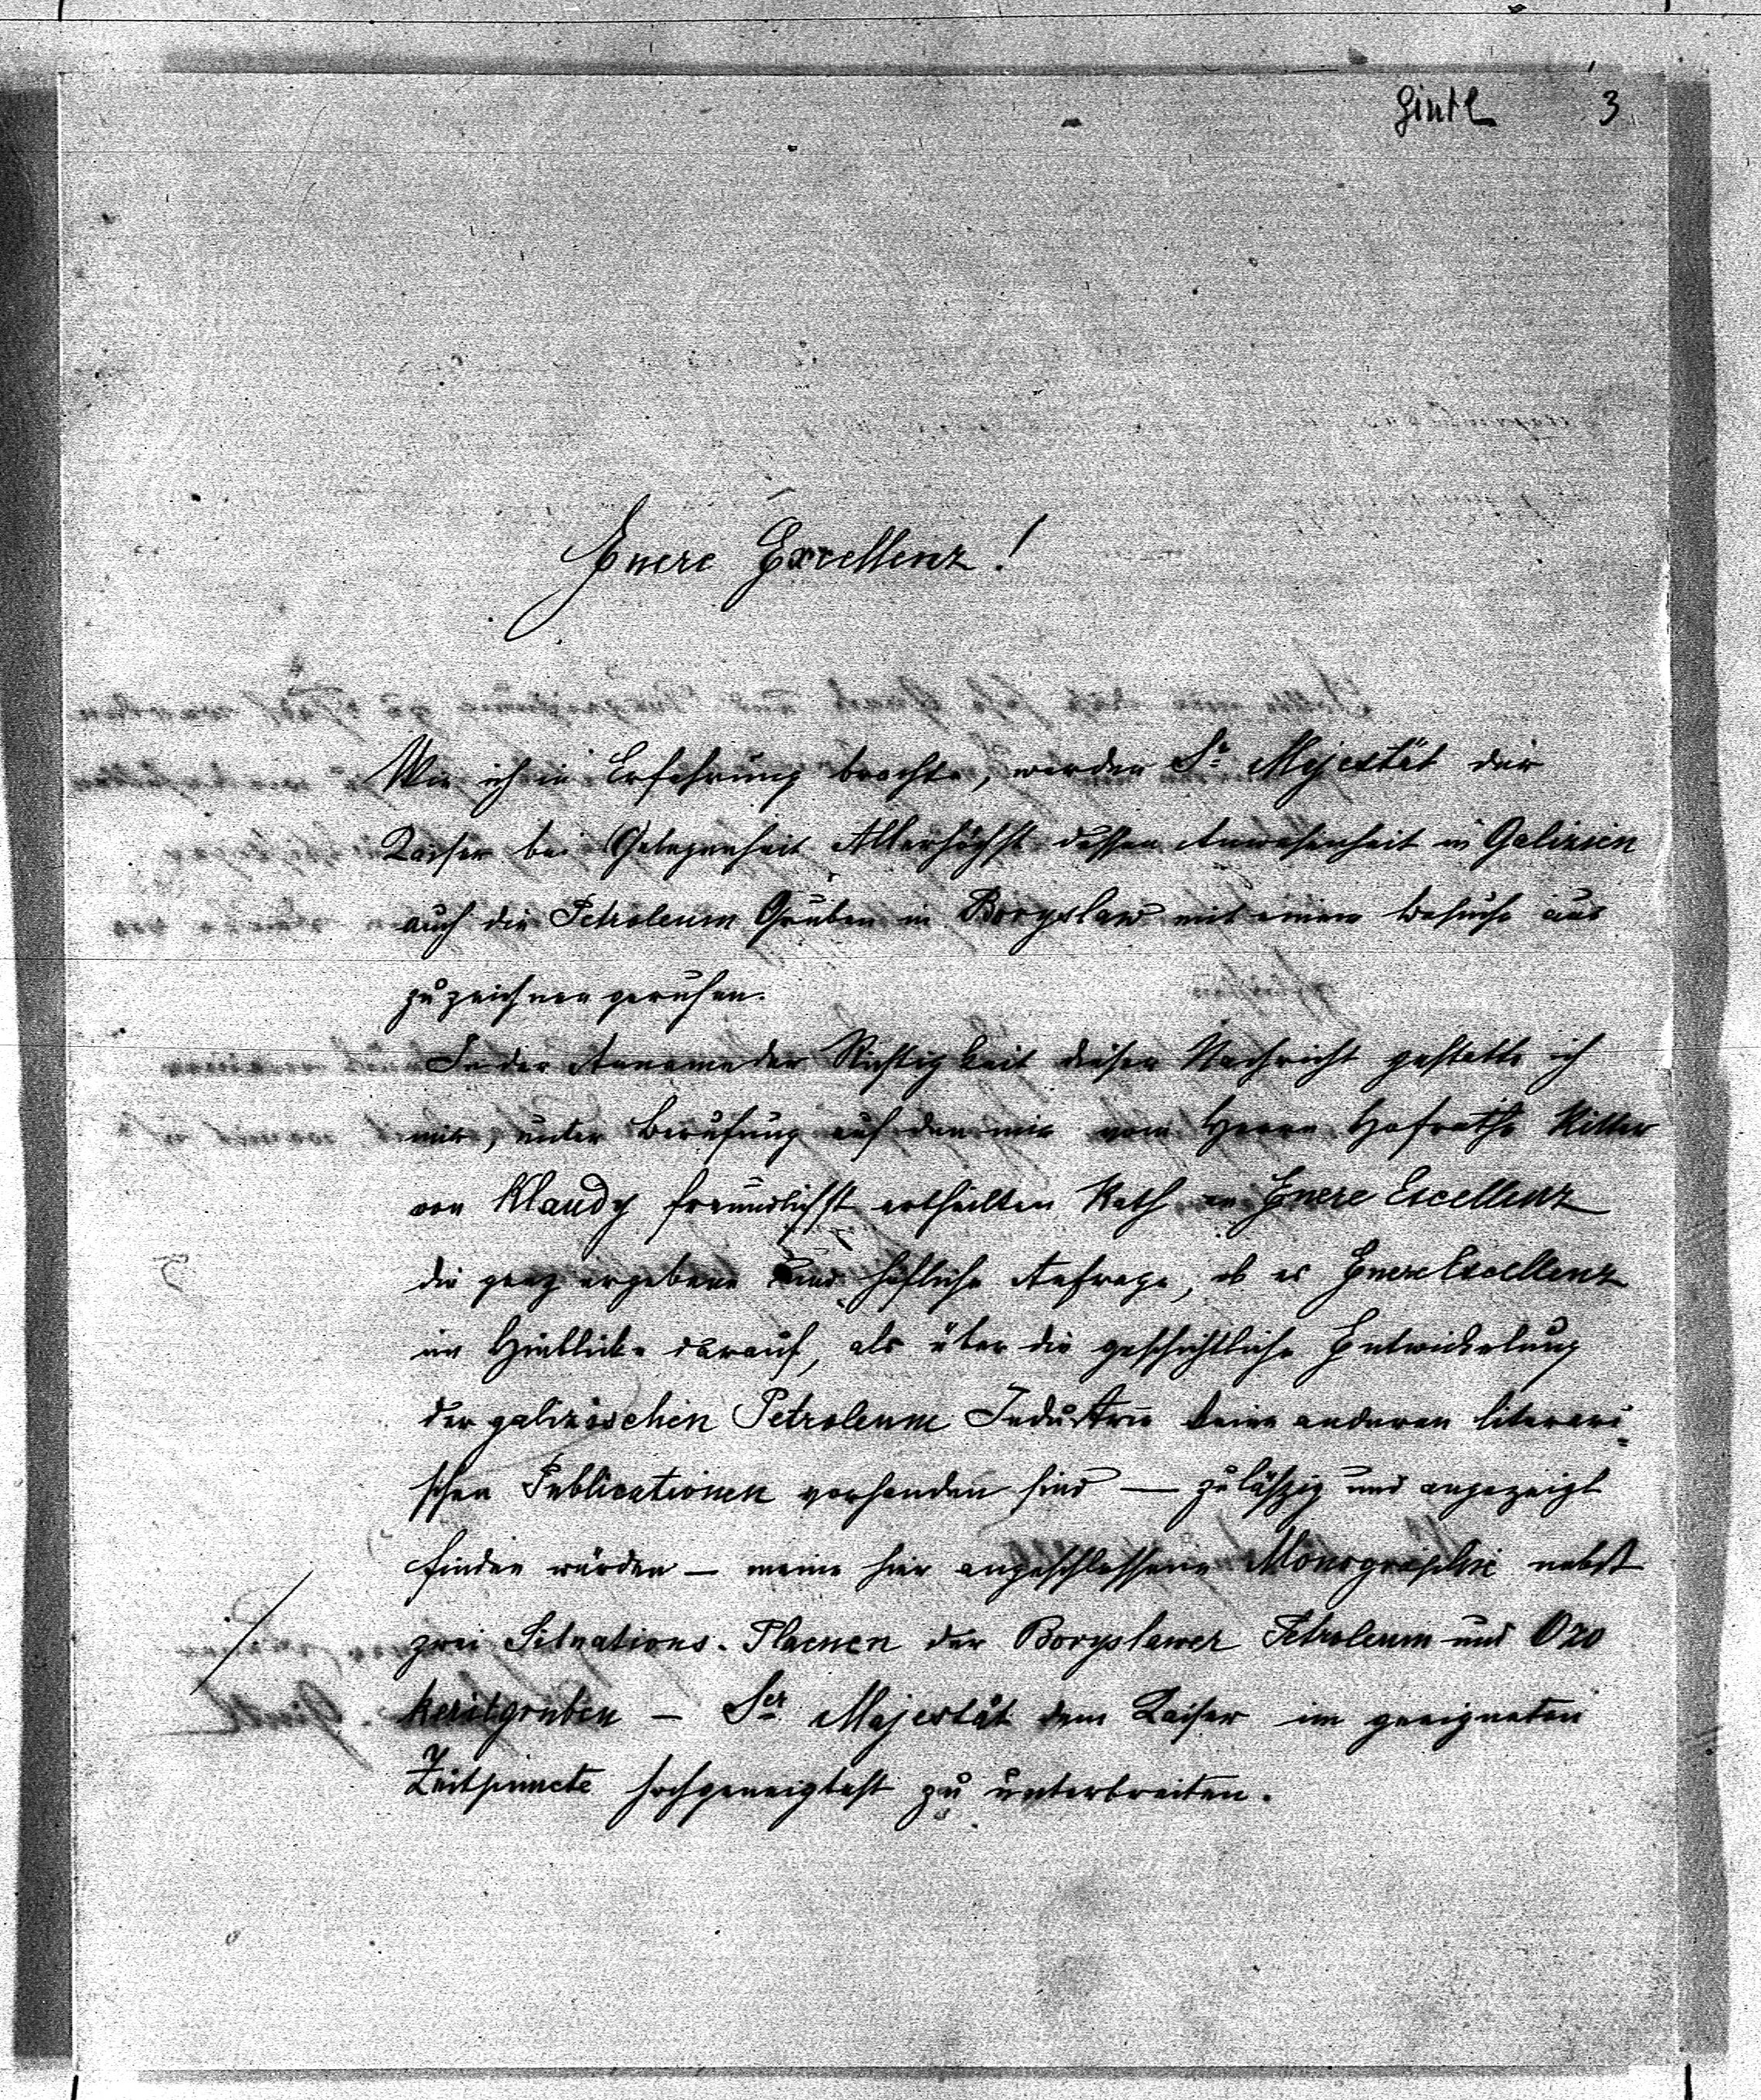 Gintl 3
Euere Excellenz!
Wie ich in Erfahrung brachte, werden Se Majestät der
Kaiser bei Gelegenheit Allerhöchst dessen Anwesenheit in Galizien
auch die Petroleum Gruben in Boryslaw mit einem Besuche aus
zuzeichnen geruhen.
In der Anname der Richtigkeit dieser Nachricht gestatte ich
mir, unter Berufung auf den mir vom Herrn Hofrathe Ritter
von Klaudy freundlichst ertheilten Rath an Euere Excellenz
die ganz ergebene und höfliche Anfrage, ob es Euere Excellenz
im Hinblicke darauf, als über die geschichtliche Entwickelung
der galizischen Petroleum Industrie keine anderen literari=
schen Publicationen vorhanden sind — zuläßig und angezeigt
finden würden — meine hier angeschlossene Monographie nebst
zwei Situations-Plaenen der Boryslawer Petroleum und Ozo
keritgruben — Ser Majestät dem Kaiser im geeigneten
Zeitpuncte hochgeneigtest zu unterbreiten.